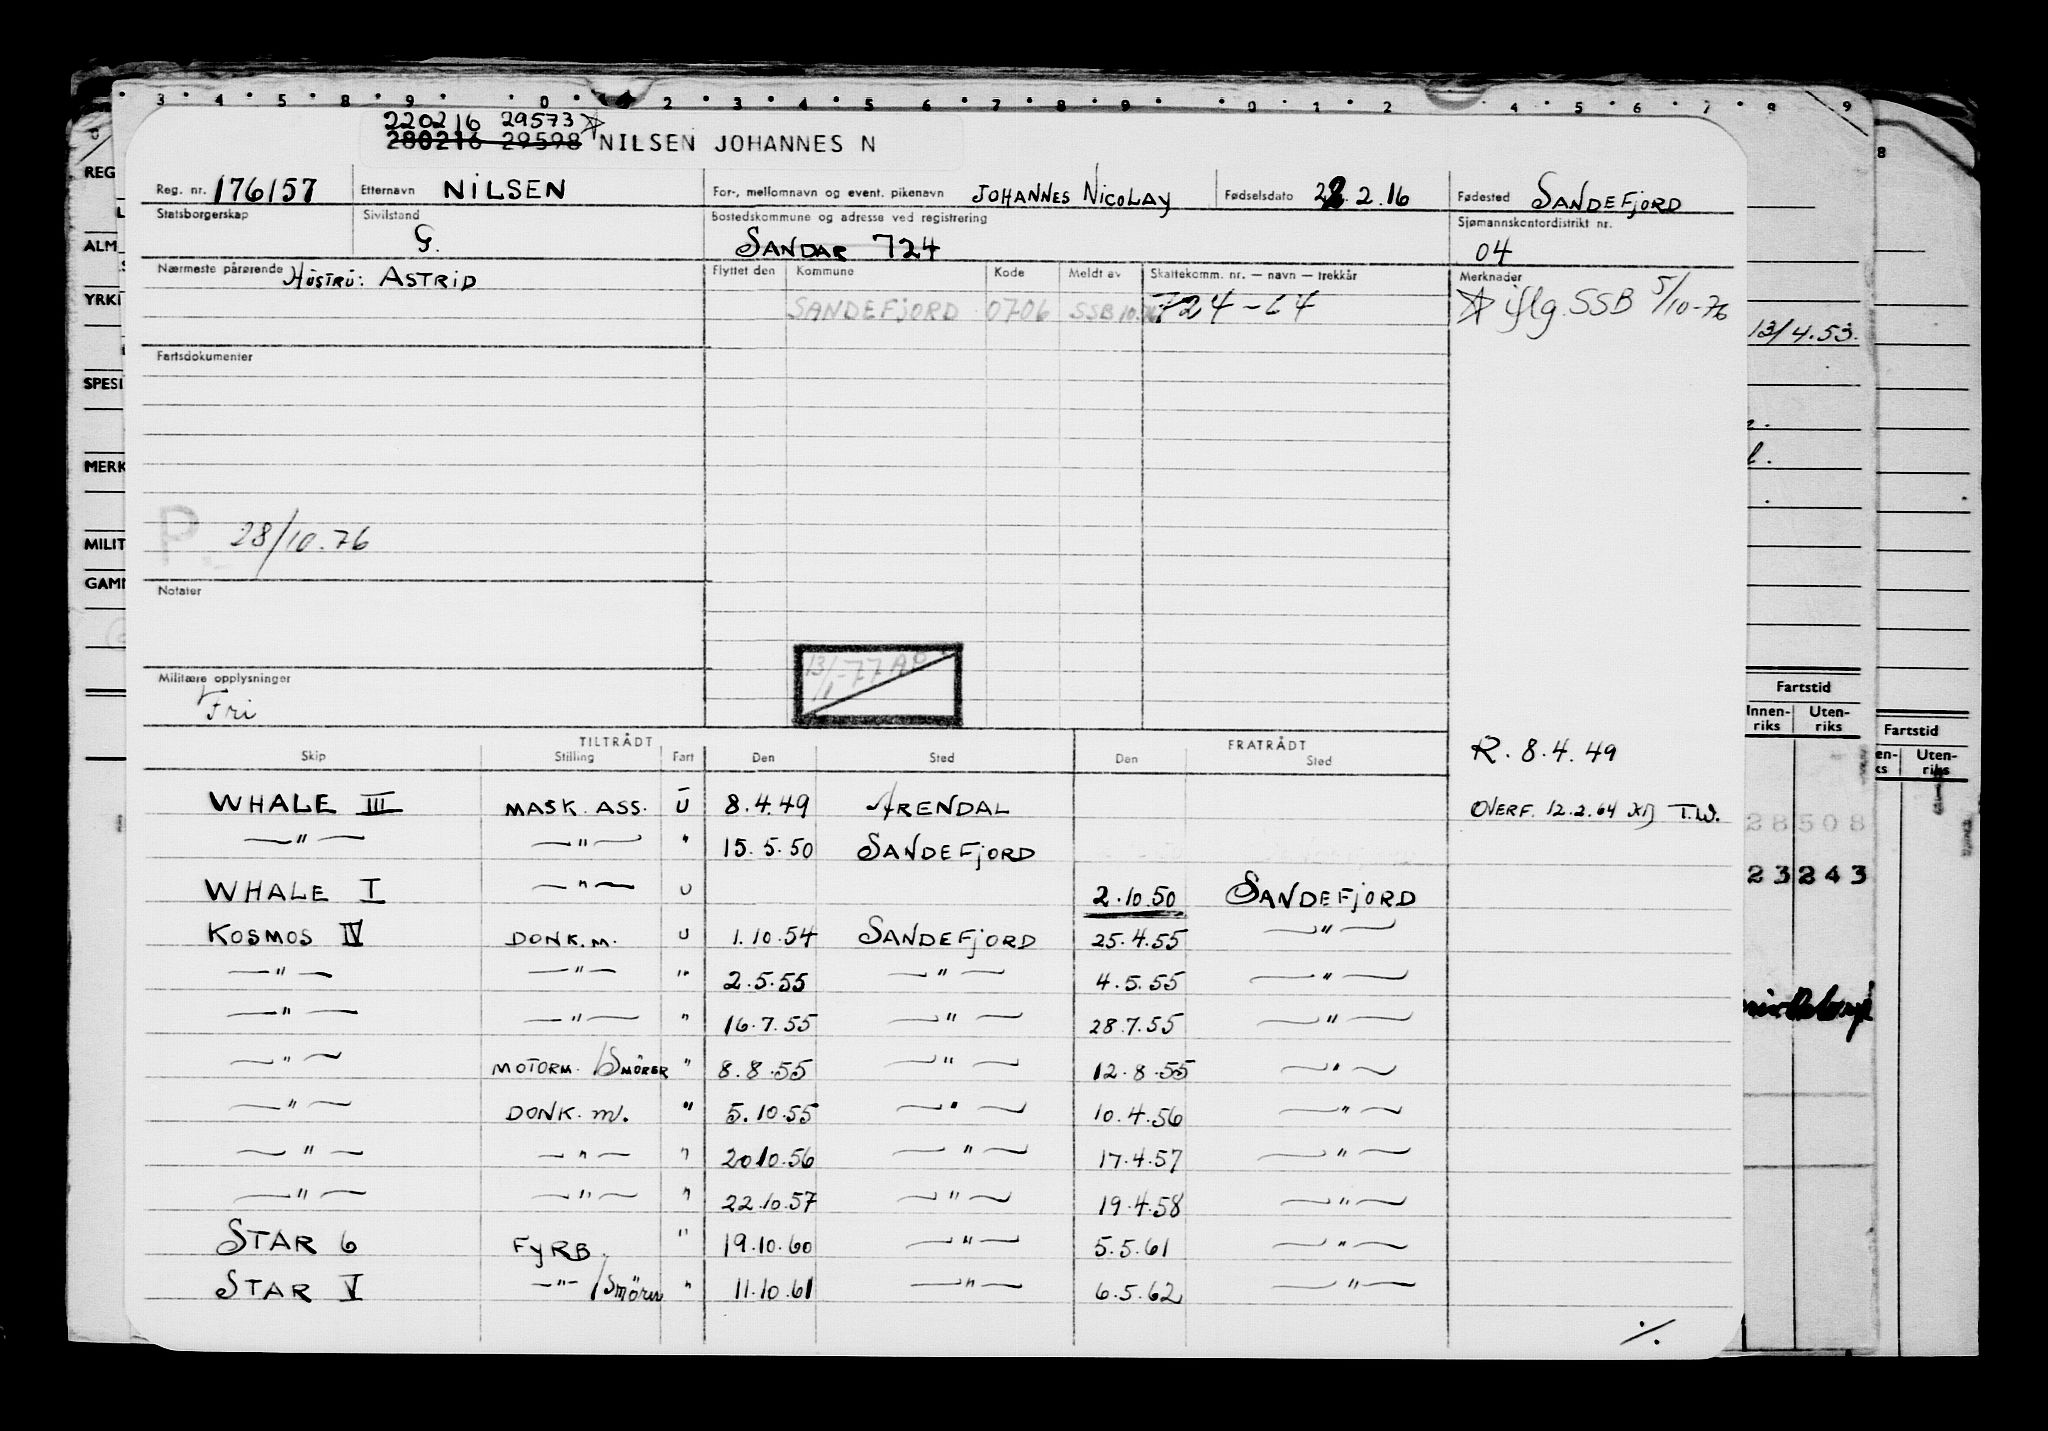 3 4 5 8 9 0 2 3 4 5 6 7 8 9 0 1 2 4 5 6 7 8 9
220216 29573 ☆
280216 29598 NILSEN JOHANNES N
Reg. nr. 176157 Etternavn NILSEN For-, mellomnavn og event. pikenavn JOHANNES NICOLAY Fødselsdato 22.2.16 Fødested SANDEFJORD
Statsborgerskap Sivilstand G. Bostedskommune og adresse ved registrering SANDAR 724 Sjømannskontordistrikt nr. 04
Nærmeste pårørende HUSTRU: ASTRID Flyttet den Kommune Kode Meldt av Skattekomm. nr. — navn — trekkår Merknader
SANDEFJORD 0706 SSB 724-64 ☆ iflg. SSB 5/10-76
Fartsdokumenter
P. 28/10.76
Notater
13/1-77
Militære opplysninger
Fri
TILTRÅDT FRATRÅDT
Skip Stilling Fart Den Sted Den Sted R. 8.4.49
WHALE III MASK. ASS. U 8.4.49 ARENDAL OVERF. 12.2.64 T.W.
—"— —"— " 15.5.50 SANDEFJORD
WHALE I —"— U 2.10.50 SANDEFJORD
KOSMOS IV DONK.M. U 1.10.54 SANDEFJORD 25.4.55 —"—
—"— —"— " 2.5.55 —"— 4.5.55 —"—
—"— —"— " 16.7.55 —"— 28.7.55 —"—
—"— MOTORM./SMÖRER " 8.8.55 —"— 12.8.55 —"—
—"— DONK.M. " 5.10.55 —"— 10.4.56 —"—
—"— —"— " 20.10.56 —"— 17.4.57 —"—
—"— —"— " 22.10.57 —"— 19.4.58 —"—
STAR 6 FYRB. " 19.10.60 —"— 5.5.61 —"—
STAR V —"—/Smörer " 11.10.61 —"— 6.5.62 —"—
./.
REG
ALM
YRKE
SPESI
MERK
MILIT
GAM
13/4.53.
Fartstid
Innen-
riks
Uten-
riks
28508
23243
8
Fartstid
en-
ks
Uten-
riks